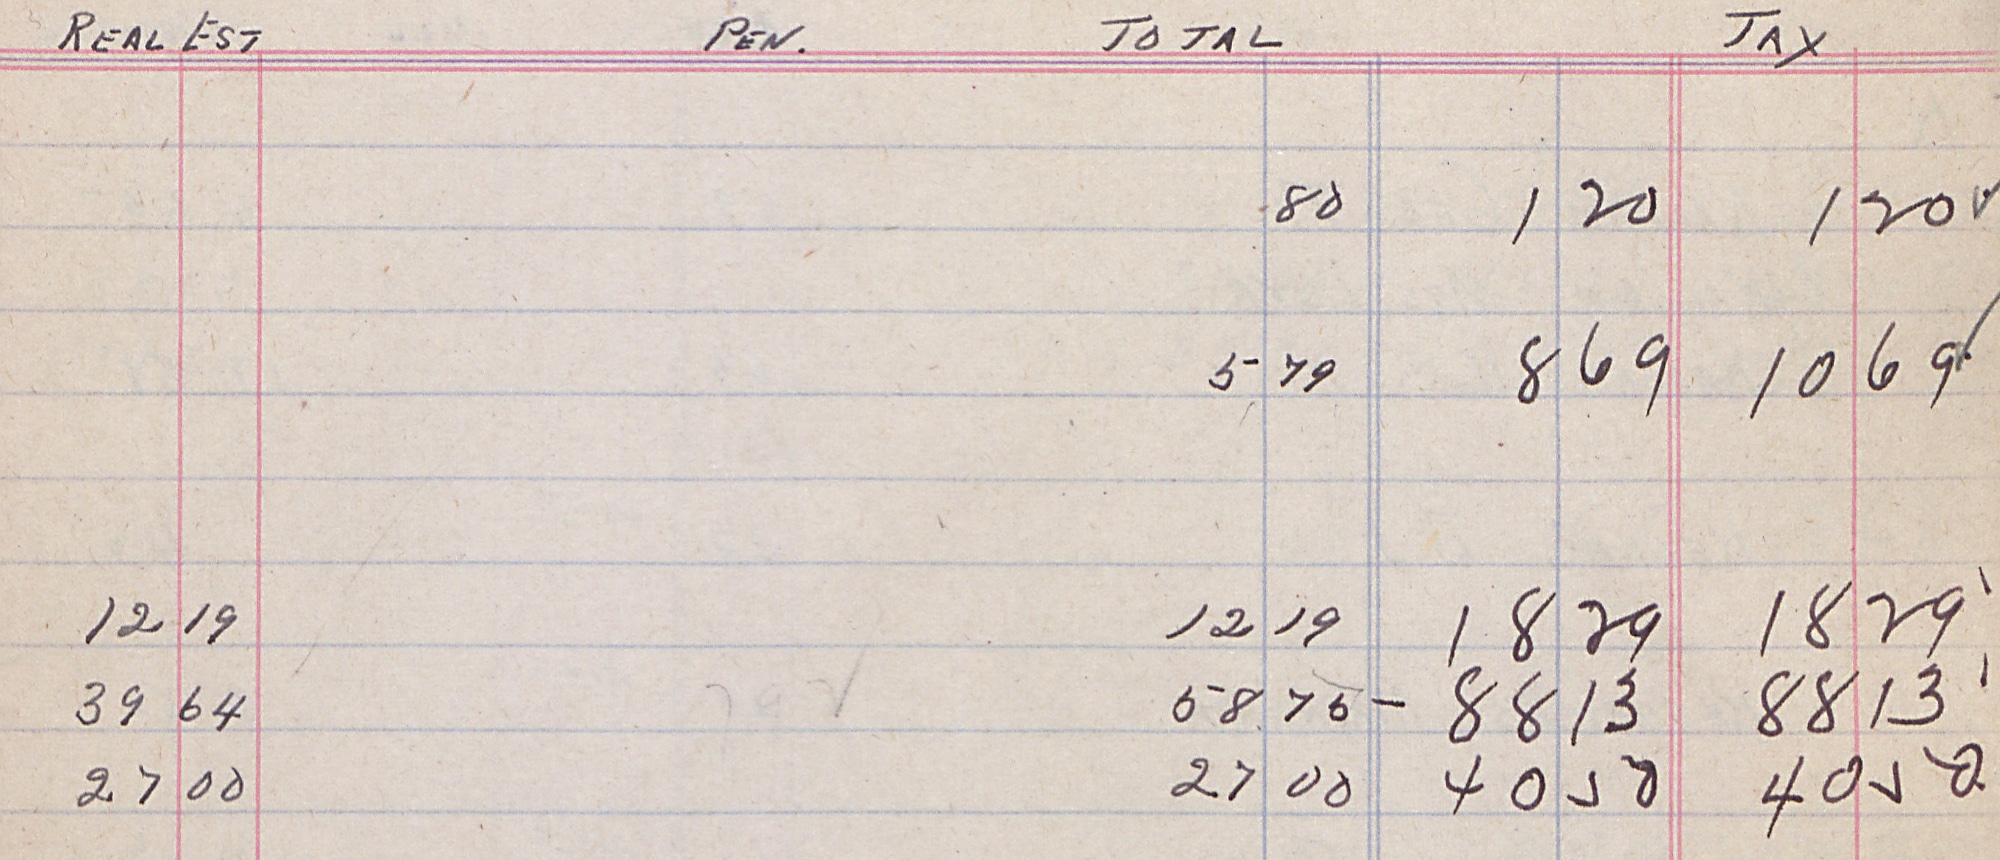 REAL EST PEN. TOTAL TAX
80 1 20 1 20 ✓
5 79 8 69 10 69 ✓
12 19 12 19 18 29 18 29
39 64 58 75 – 88 13 88 13
27 00 27 00 40 50 40 50